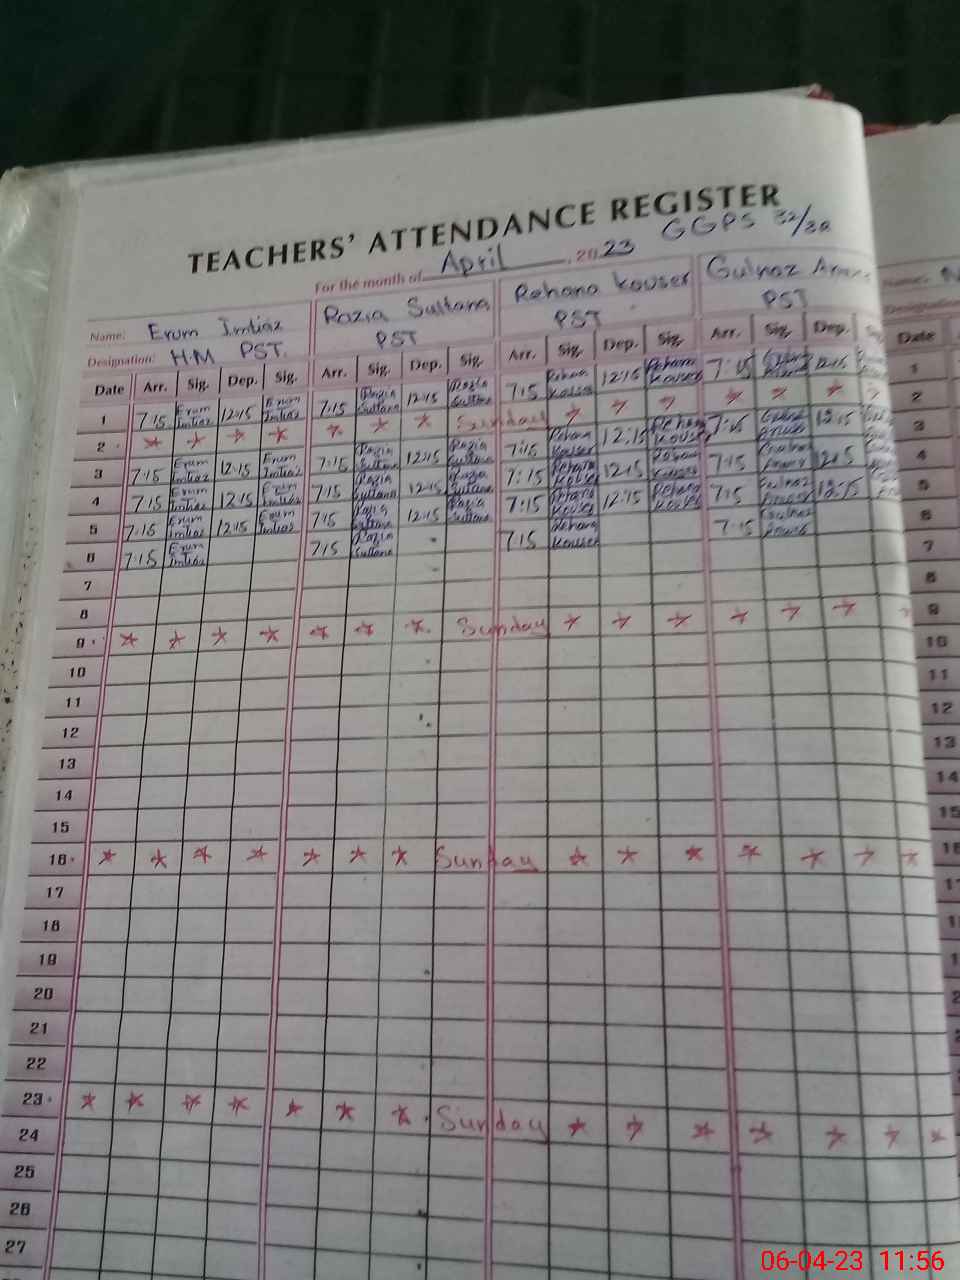 TEACHERS' ATTENDANCE REGISTER
GGPS 32/
For the month of April, 2023
Name: Erum Imtiaz Razia Sultana Rehana Kouser Gulnaz
Designation: HM PST. PST PST PST
Date Arr. Sig. Dep. Sig. Arr. Sig. Dep. Sig. Arr. Sig. Dep. Sig. Arr. Sig. Dep. Date
1 7:15 Erum Imtiaz 12:15 Erum Imtiaz 7:15 Razia Sultana 12:15 Razia Sultana 7:15 Rehana Kouser 12:15 Rehana Kouser 7:15 12:15 1
2 Sunday 2
3 7:15 Erum Imtiaz 12:15 Erum Imtiaz 7:15 Razia Sultana 12:15 Razia Sultana 7:15 Rehana Kouser 12:15 Rehana Kouser 7:15 12:15 3
4 7:15 Erum Imtiaz 12:15 Erum Imtiaz 7:15 Razia Sultana 12:15 Razia Sultana 7:15 Rehana Kouser 12:15 Rehana Kouser 7:15 12:15 4
5 7:15 Erum Imtiaz 12:15 Erum Imtiaz 7:15 Razia Sultana 12:15 Razia Sultana 7:15 Rehana Kouser 12:15 Rehana Kouser 7:15 Gulnaz 12:15 5
6 7:15 Erum Imtiaz 7:15 Razia Sultana 7:15 Rehana Kouser 7:15 Gulnaz 6
7 7
8 8
9 Sunday 9
10 10
11 11
12 12
13 13
14 14
15 15
16 Sunday 16
17
18
19
20
21
22
23 Sunday
24
25
26
27
06-04-23 11:56